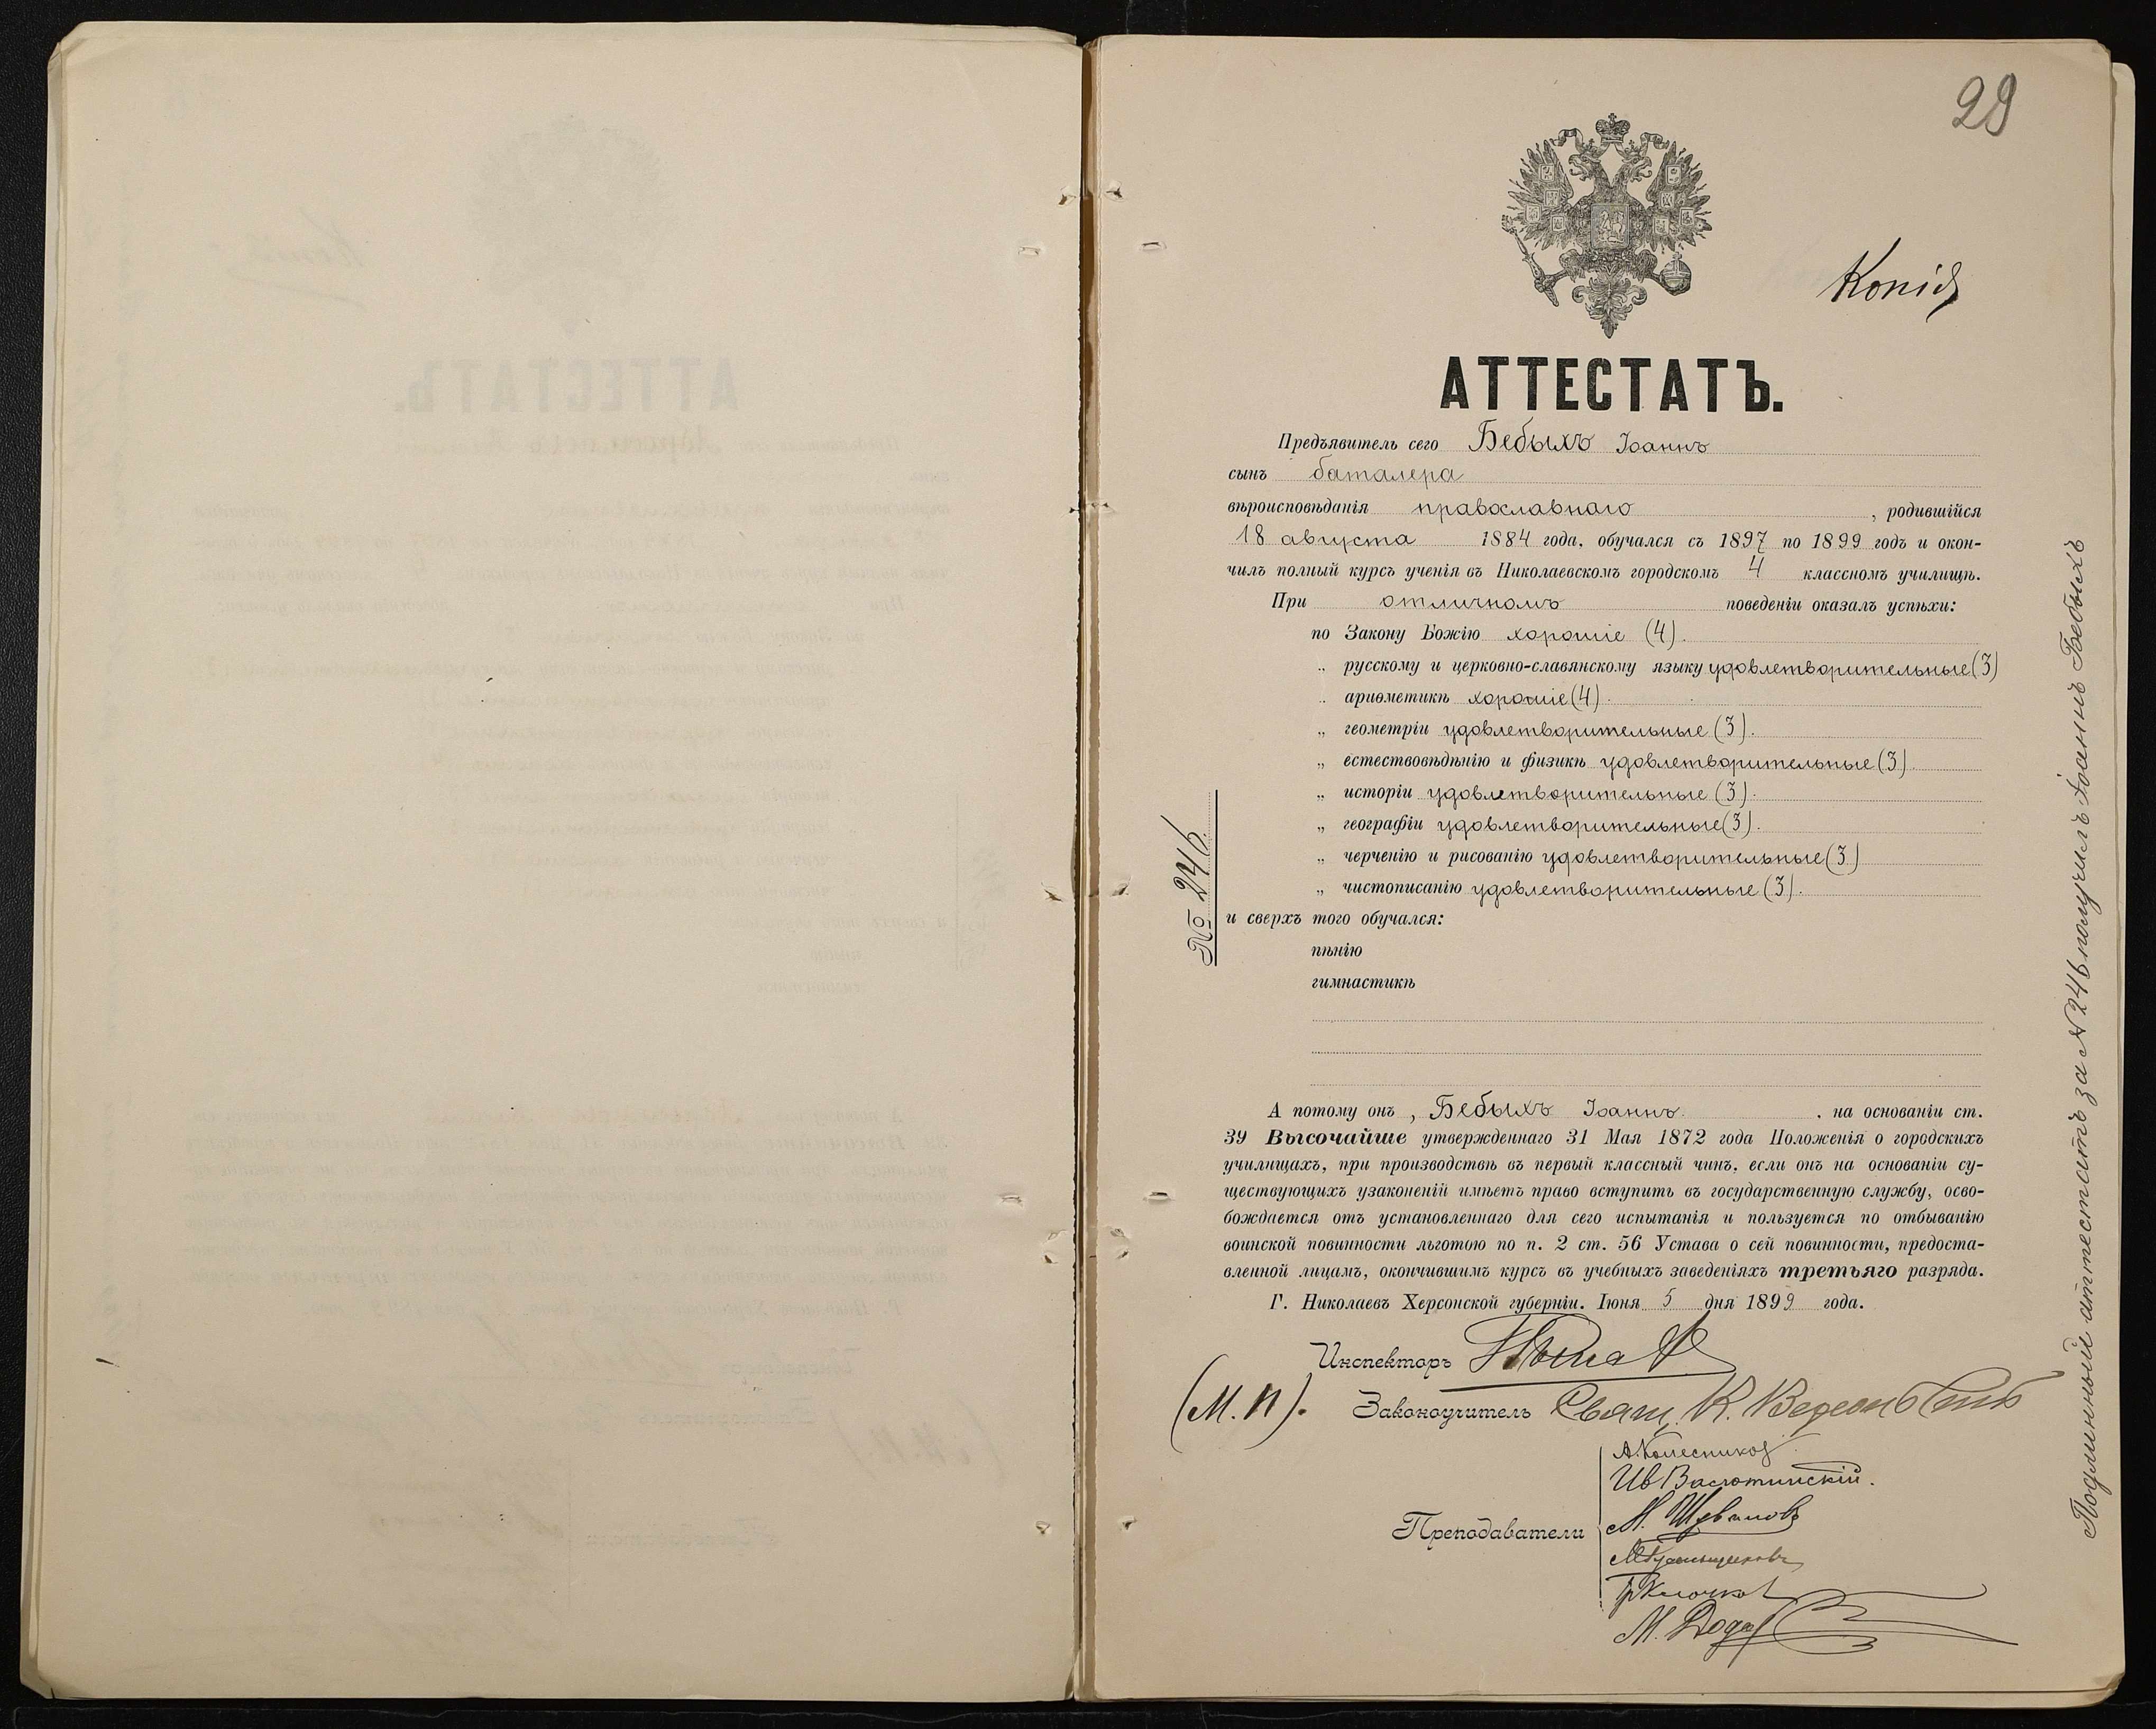 29
Копія
АТТЕСТАТЪ.
Предъявитель сего Бебыхъ Іоаннъ
сынъ баталера
вѣроисповѣданія православнаго, родившійся
18 августа 1884 года, обучался съ 1897 по 1899 годъ и окон-
чилъ полный курсъ ученія въ Николаевскомъ городскомъ 4 классномъ училищѣ.
При отличномъ поведеніи оказалъ успѣхи:
по Закону Божію хорошіе (4).
„ русскому и церковно-славянскому языку удовлетворительные (3)
„ ариѳметикѣ хорошіе (4).
„ геометріи удовлетворительные (3).
„ естествовѣдѣнію и физикѣ удовлетворительные (3).
„ исторіи удовлетворительные (3).
„ географіи удовлетворительные (3).
„ черченію и рисованію удовлетворительные (3)
„ чистописанію удовлетворительные (3).
№ 246.
и сверхъ того обучался:
пѣнію
гимнастикѣ
А потому онъ, Бебыхъ Іоаннъ, на основаніи ст.
39 Высочайше утвержденнаго 31 Мая 1872 года Положенія о городскихъ
училищахъ, при производствѣ въ первый классный чинъ, если онъ на основаніи су-
ществующихъ узаконеній имѣетъ право вступить въ государственную службу, осво-
бождается отъ установленнаго для сего испытанія и пользуется по отбыванію
воинской повинности льготою по п. 2 ст. 56 Устава о сей повинности, предоста-
вленной лицамъ, окончившимъ курсъ въ учебныхъ заведеніяхъ третьяго разряда.
Г. Николаевъ Херсонской губерніи. Іюня 5 дня 1899 года.
Инспекторъ
(М.П). Законоучитель Свящ. К.
Преподаватели
А. Колесников
Ив Васютинскій.
М. Шевановъ
Клочков
М. Дода
Подлинный аттестатъ за № 246 получилъ Іоаннъ Бебыхъ